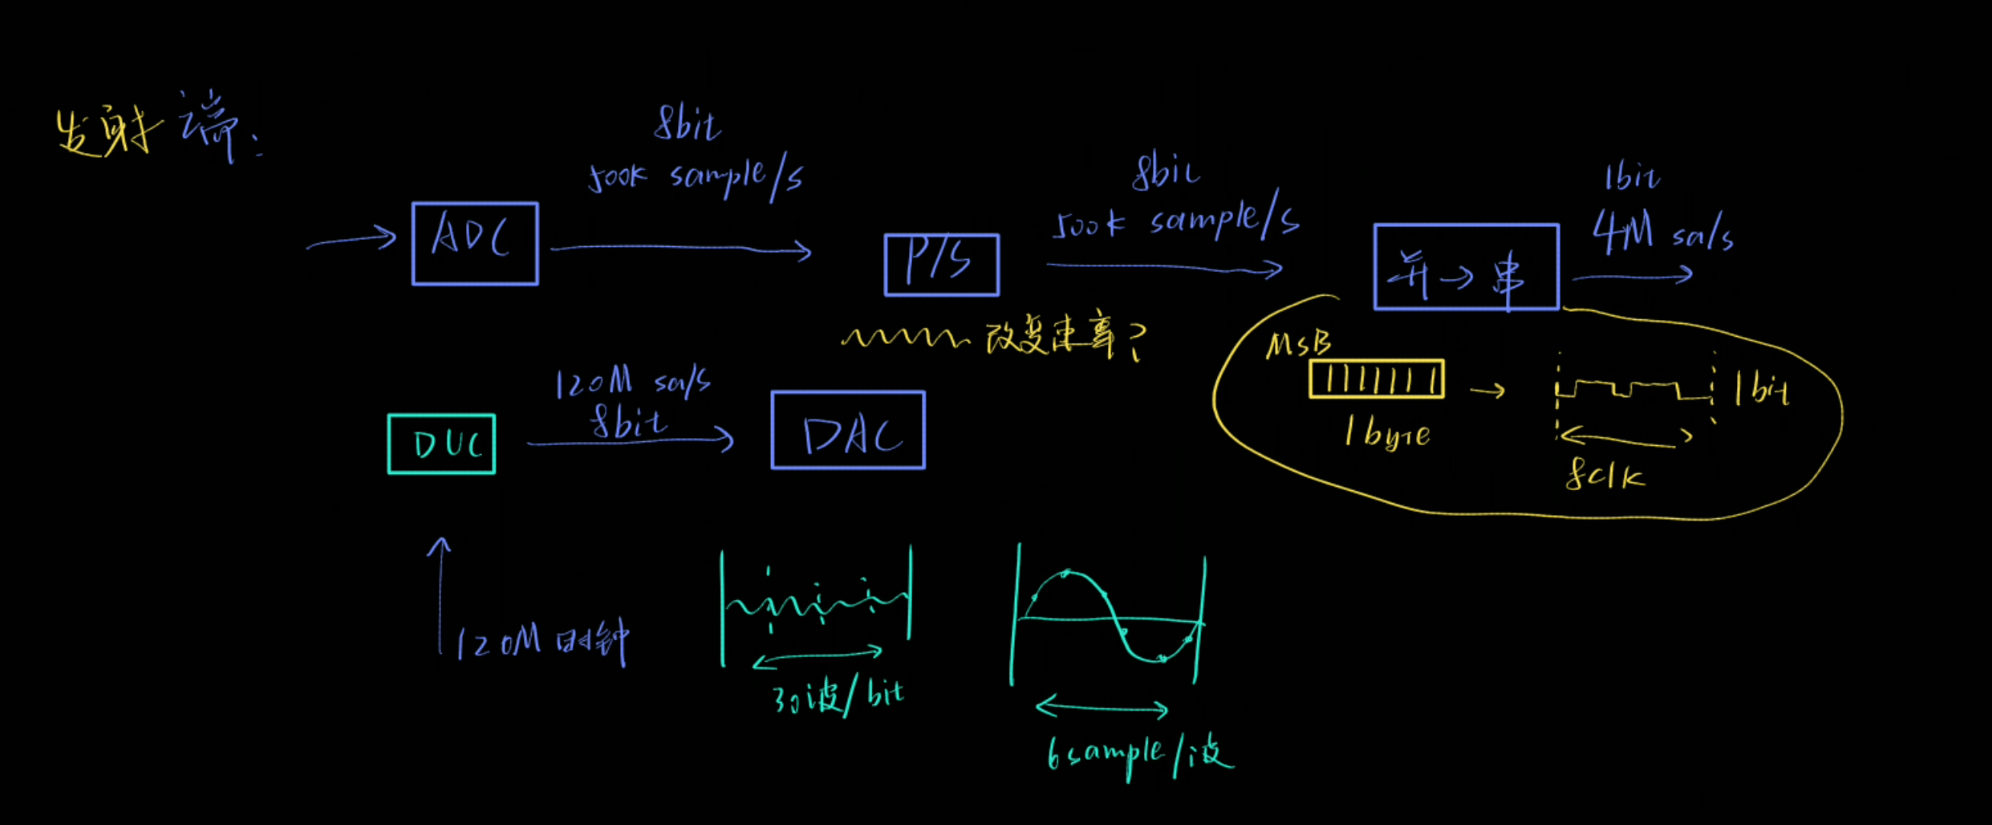 发射端:
8bit
500k sample/s
ADC
P/S
8bit
500k sample/s
并→串
1bit
4M sa/s
改变速率?
MSB
1byte
1bit
8clk
DUC
120M sa/s
8bit
DAC
120M 时钟
30波/bit
6sample/波